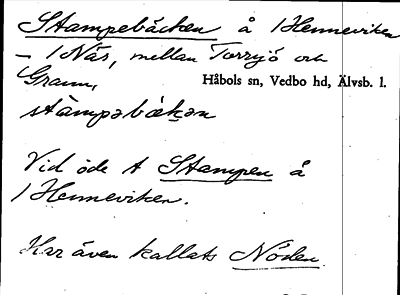 Stampebäcken å 1 Henneviken
– 1 När, mellan Torrsjö och
Grann,
Håbols sn, Vedbo hd, Älvsb. l.
stàmpəbækən
Vid öde t Stampen å
1 Henneviken.
Har även kallats Nolen.